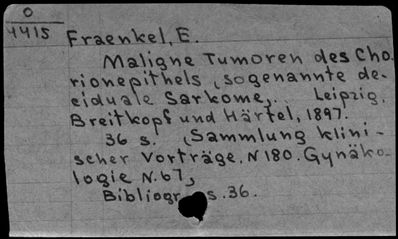 O
4415
Fraenkel, E.
Maligne Tumoren des Cho.
rionepithels (sogenannte de-
ciduale Sarkome)... Leipzig,
Breitkopf und Härtel, 1897.
36 s. (Sammlung klini-
scher Vorträge. N 180. Gynäko-
logie N. 67)
Bibliogr s. 36.